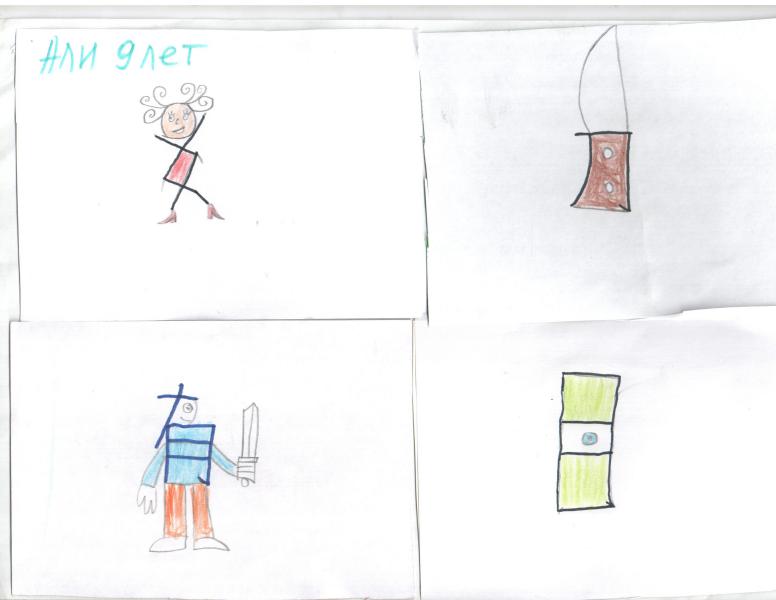 Али 9 лет